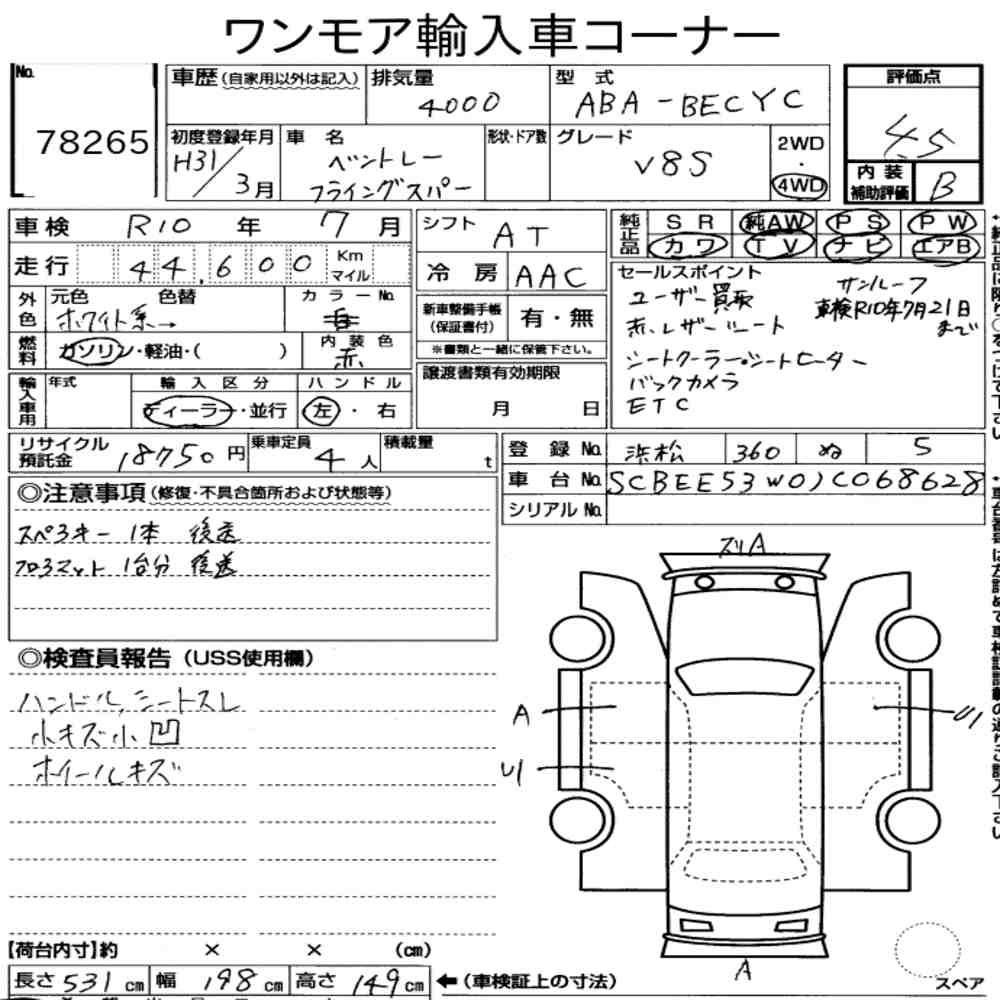 ワンモア輸入車コーナー
No.
78265
車歴(自家用以外は記入)
排気量
4000
型式
ABA-BECYC
評価点
4.5
初度登録年月
H31/3月
車名
ベントレー
フライングスパー
形状・ドア数
グレード
V8S
2WD
・
4WD
内装
補助評価
B
車検 R10年 7月
走行 44,600 Km マイル
外色
元色 色替
ホワイト系→
カラーNo.
燃料
ガソリン・軽油・( )
内装色
赤
輸入車用
年式
輸入区分
ディーラー・並行
ハンドル
左・右
シフト
AT
冷房
AAC
新車整備手帳
(保証書付)
有・無
※書類と一緒に保管下さい。
譲渡書類有効期限
月 日
純正品
SR 純AW PS PW
カワ TV ナビ エアB
セールスポイント
ユーザー買取
サンルーフ
赤レザーシート
車検R10年7月21日
まで
シートクーラー・シートヒーター
バックカメラ
ETC
リサイクル
預託金
18750円
乗車定員
4人
積載量
t
登録No. 浜松 360 ぬ 5
車台No. SCBEE53W0JC068628
シリアルNo.
◎注意事項(修復・不具合箇所および状態等)
スペアキー 1本 後送
フロアマット 1台分 後送
◎検査員報告(USS使用欄)
ハンドル,シートスレ
小キズ小凹
ホイールキズ
ズリA
A
U1
U1
A
スペア
【荷台内寸】約 × × (cm)
長さ 531 cm 幅 198 cm 高さ 149 cm
←(車検証上の寸法)